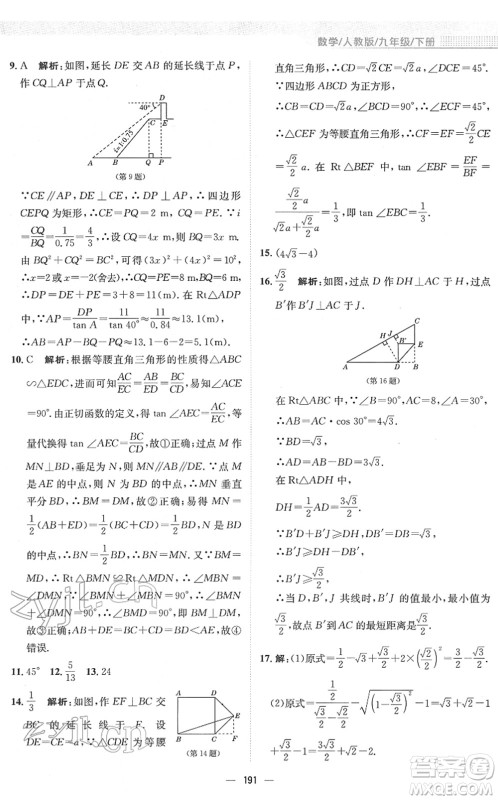 数学/人教版/九年级/下册
9. A 解析:如图,延长 DE 交 AB 的延长线于点 P,
作 CQ⊥AP 于点 Q.
D
40°
C
E
i=1:0.75
A B Q P
(第 9 题)
∵CE∥AP,∴DP⊥AP,∴四边形
CEPQ 为矩形,∴CE=PQ=2 m,CQ=PE. ∵i
=CQ/BQ=1/0.75=4/3,∴设 CQ=4x m,BQ=3x m,
由 BQ²+CQ²=BC²,可得(3x)²+(4x)²=10²,
解得 x=2 或 x=-2(舍去),∴CQ=PE=8 m,
BQ=6 m,∴DP=DE+PE=3+8=11(m). 在
Rt△ADP 中,∵AP=DP/tan A=11/tan 40°≈11/0.84≈13.1(m),
∴AB=AP-BQ-PQ≈13.1-6-2=5.1(m).
10. C 解析:根据等腰直角三角形的性质得△ABC
∽△EDC,进而可知 AC/EC=BC/DC,即AC/BC=EC/DC. ∵∠ACE
=90°. 由正切的概念可得 tan∠AEC=AC/EC,等
量代换得 tan∠AEC=BC/CD,①正确;过点 M 作
MN⊥BD,垂足为 N,则 MN∥AB∥DE,MN垂直
平分 BD,∴BM=DM,②正确;易得 MN=
1/2(AB+ED)=1/2(BC+CD)=1/2BD,∵N 是 BD
的中点,∴BN=DN=1/2BD,③正确;∵N 为 BD
的中点,∴Rt△BMN≌Rt△DMN,∴∠MBN=
∠DMN,∵∠MBN+∠BMN=90°,∴∠BMN+
∠DMN=90°,∴∠BMD=90°,即 BM⊥DM,④
错误.
11. 45° 12. 5/13 13. 24
14. 1/3 解析:如图,作 EF⊥BC 交
BC 的延长线于 F. 设
DE=CE=a,∵△CDE 为等腰
A D
E
B C F
(第 14 题)
直角三角形,∴CD=√2CE=√2a,∠DCE=45°.
∵四边形 ABCD 为正方形,∴CB=CD=
√2a,∠BCD=90°,∴∠ECF=45°,
∴△CEF 为等腰直角三角形,∴CF=EF=
√2/2CE=√2/2a. 在 Rt△BEF 中,tan∠EBF=EF/BF=
√2/2a/(√2a+√2/2a)=1/3,即 tan∠EBC=1/3.
15. (4√3-4)
16. √3/2 解析:如图,过点 D 作 DH⊥AC 于 H,过点
B′作 B′J⊥AC 于 J.
C
J
H
B′
E
A D B
(第 16 题)
在 Rt△ACB 中,∵∠ABC=90°,AC=8,∠A=30°,
∴AB=AC·cos 30°=4√3.
∵BD=√3,
∴AD=AB-BD=3√3.
∵∠AHD=90°,
∴DH=1/2AD=3√3/2.
∵B′D+B′J≥DH,DB′=DB=√3,
∴B′J≥DH-DB′=√3/2,
∴B′J≥√3/2,
∴当 D,B′,J 共线时,B′J 的值最小,最小值
为√3/2,∴点 B′到 AC 的最短距离是√3/2.
17. 解:(1)原式=1/2-√3/2+2×(√3/2)²=1/2-√3/2+3/2=
2-√3/2.
(2)原式=√2/2×√2/2-√((√3/2-1)²)-√3/2=1/2-
1+√3/2-√3/2=-1/2.
191